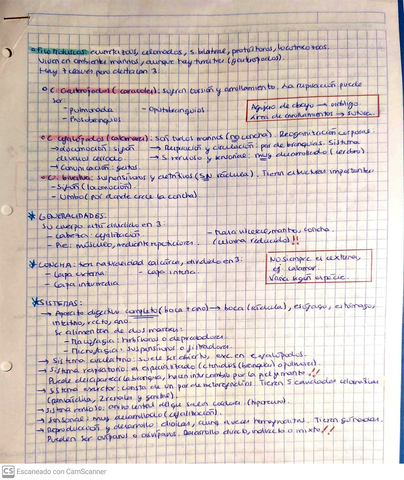 Filo Moluscos: eumetazoos, celomados, s. bilateral, protóstomos,
Viven en ambientes marinos, aunque hay terrestres (gasterópodos).
Hay 7 clases pero destacan 3:
C. Gasterópodos (caracoles): sufren torsión y enrollamiento. La respiración puede
ser:
- Pulmonada - Opistobranquios
- Prosobranquios
Agujero de abajo → ombligo
línea de enrollamientos → sutura.
C. cefalópodos (calamares): son todos marinos (no concha). Reorganización corporal:
→ locomoción: sifón → Respiración y circulación: par de branquias. Sistema
circular cerrado → S. nervioso y sensorial: muy desarrollado (cerebro).
→ Comunicación: gestos.
C. bivalvos: suspensívoros y detritívoros (sin rádula). Tienen estructuras importantes:
- Sifón (locomoción).
- Umbo (por donde crece la concha).
GENERALIDADES:
Su cuerpo está dividido en 3:
- cabeza: cefalización - Masa visceral, manto, concha.
- Pie: músculo, mediante repectadores. (celoma reducido)!!
CONCHA: son naturalidad calcárica, dividido en 3:
- Capa externa - Capa interna
- Capa intermedia
No siempre es externa,
ej. calamar.
Varía según especie.
SISTEMAS:
→ Aparato digestivo completo (boca + ano) → boca (rádula), esófago, estómago,
intestino, recto, ano.
Se alimentan de dos maneras:
- Macrofagia: herbívoros o depredadores
- Microfagia: suspensívoros o filtradores.
→ Sistema circulatorio: suele ser abierto, exc. en cefalópodos.
→ Sistema respiratorio: es especializado (ctenidios (branquias) o pulmones).
Puede desaparecer la branquia, hacen intercambio por la piel y manto!!
→ Sistema excretor: consta de un par de metanefridios. Tienen 3 cavidades celomáticas
(pericárdica, 2 renales y gonadal).
→ Sistema nervioso: anillo central del que salen cordones
→ Sensorial: muy desarrollado (cefalización).
→ Reproducción y desarrollo: dioicos, aunq. a veces hermafroditas. Tienen gónadas.
Pueden ser ovíparos o ovovíparos. Desarrollo directo, indirecto o mixto!!
CS Escaneado con CamScanner